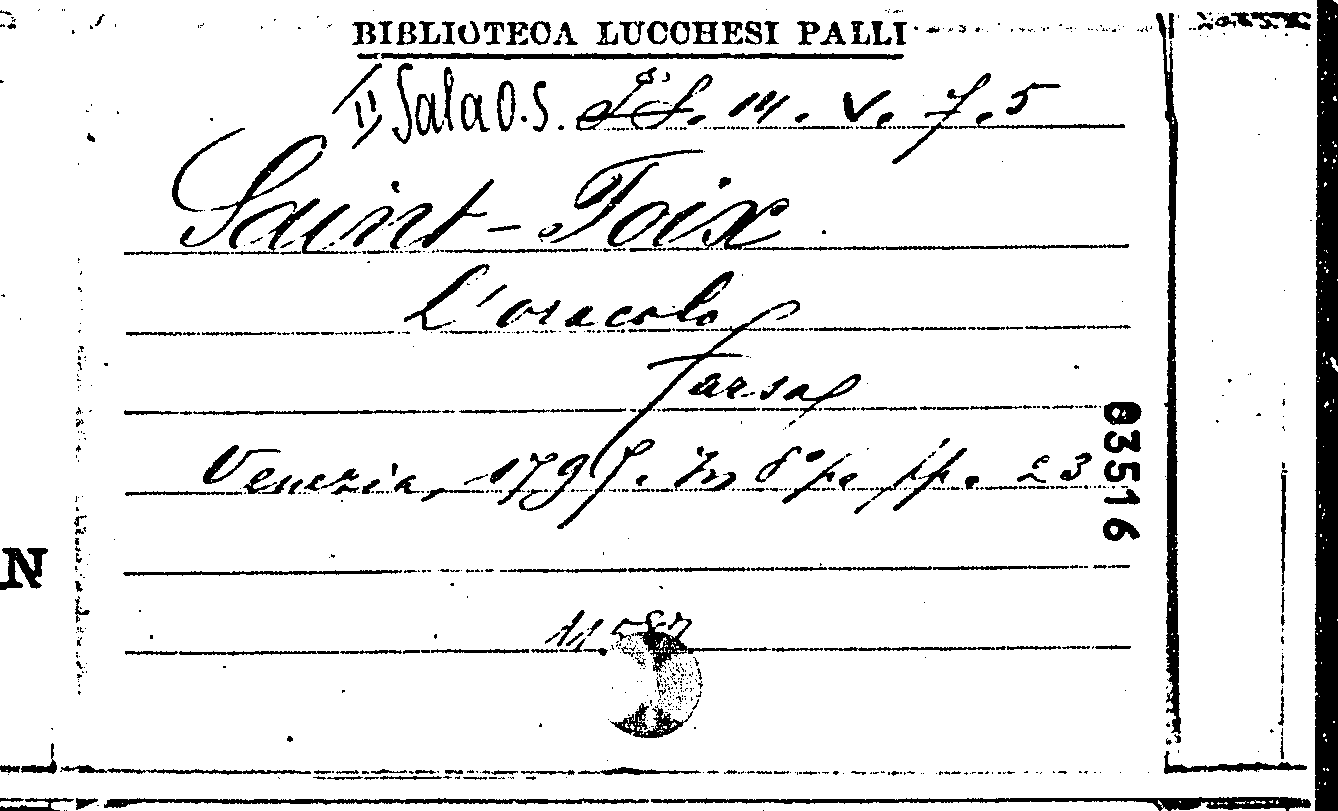 BIBLIOTECA LUCCHESI PALLI
II Sala O.S. III. V. 7.5
Saint-Foix
L'oracolo
Farsa
Venezia, 179 In 8° p. pp. 23
03516
N